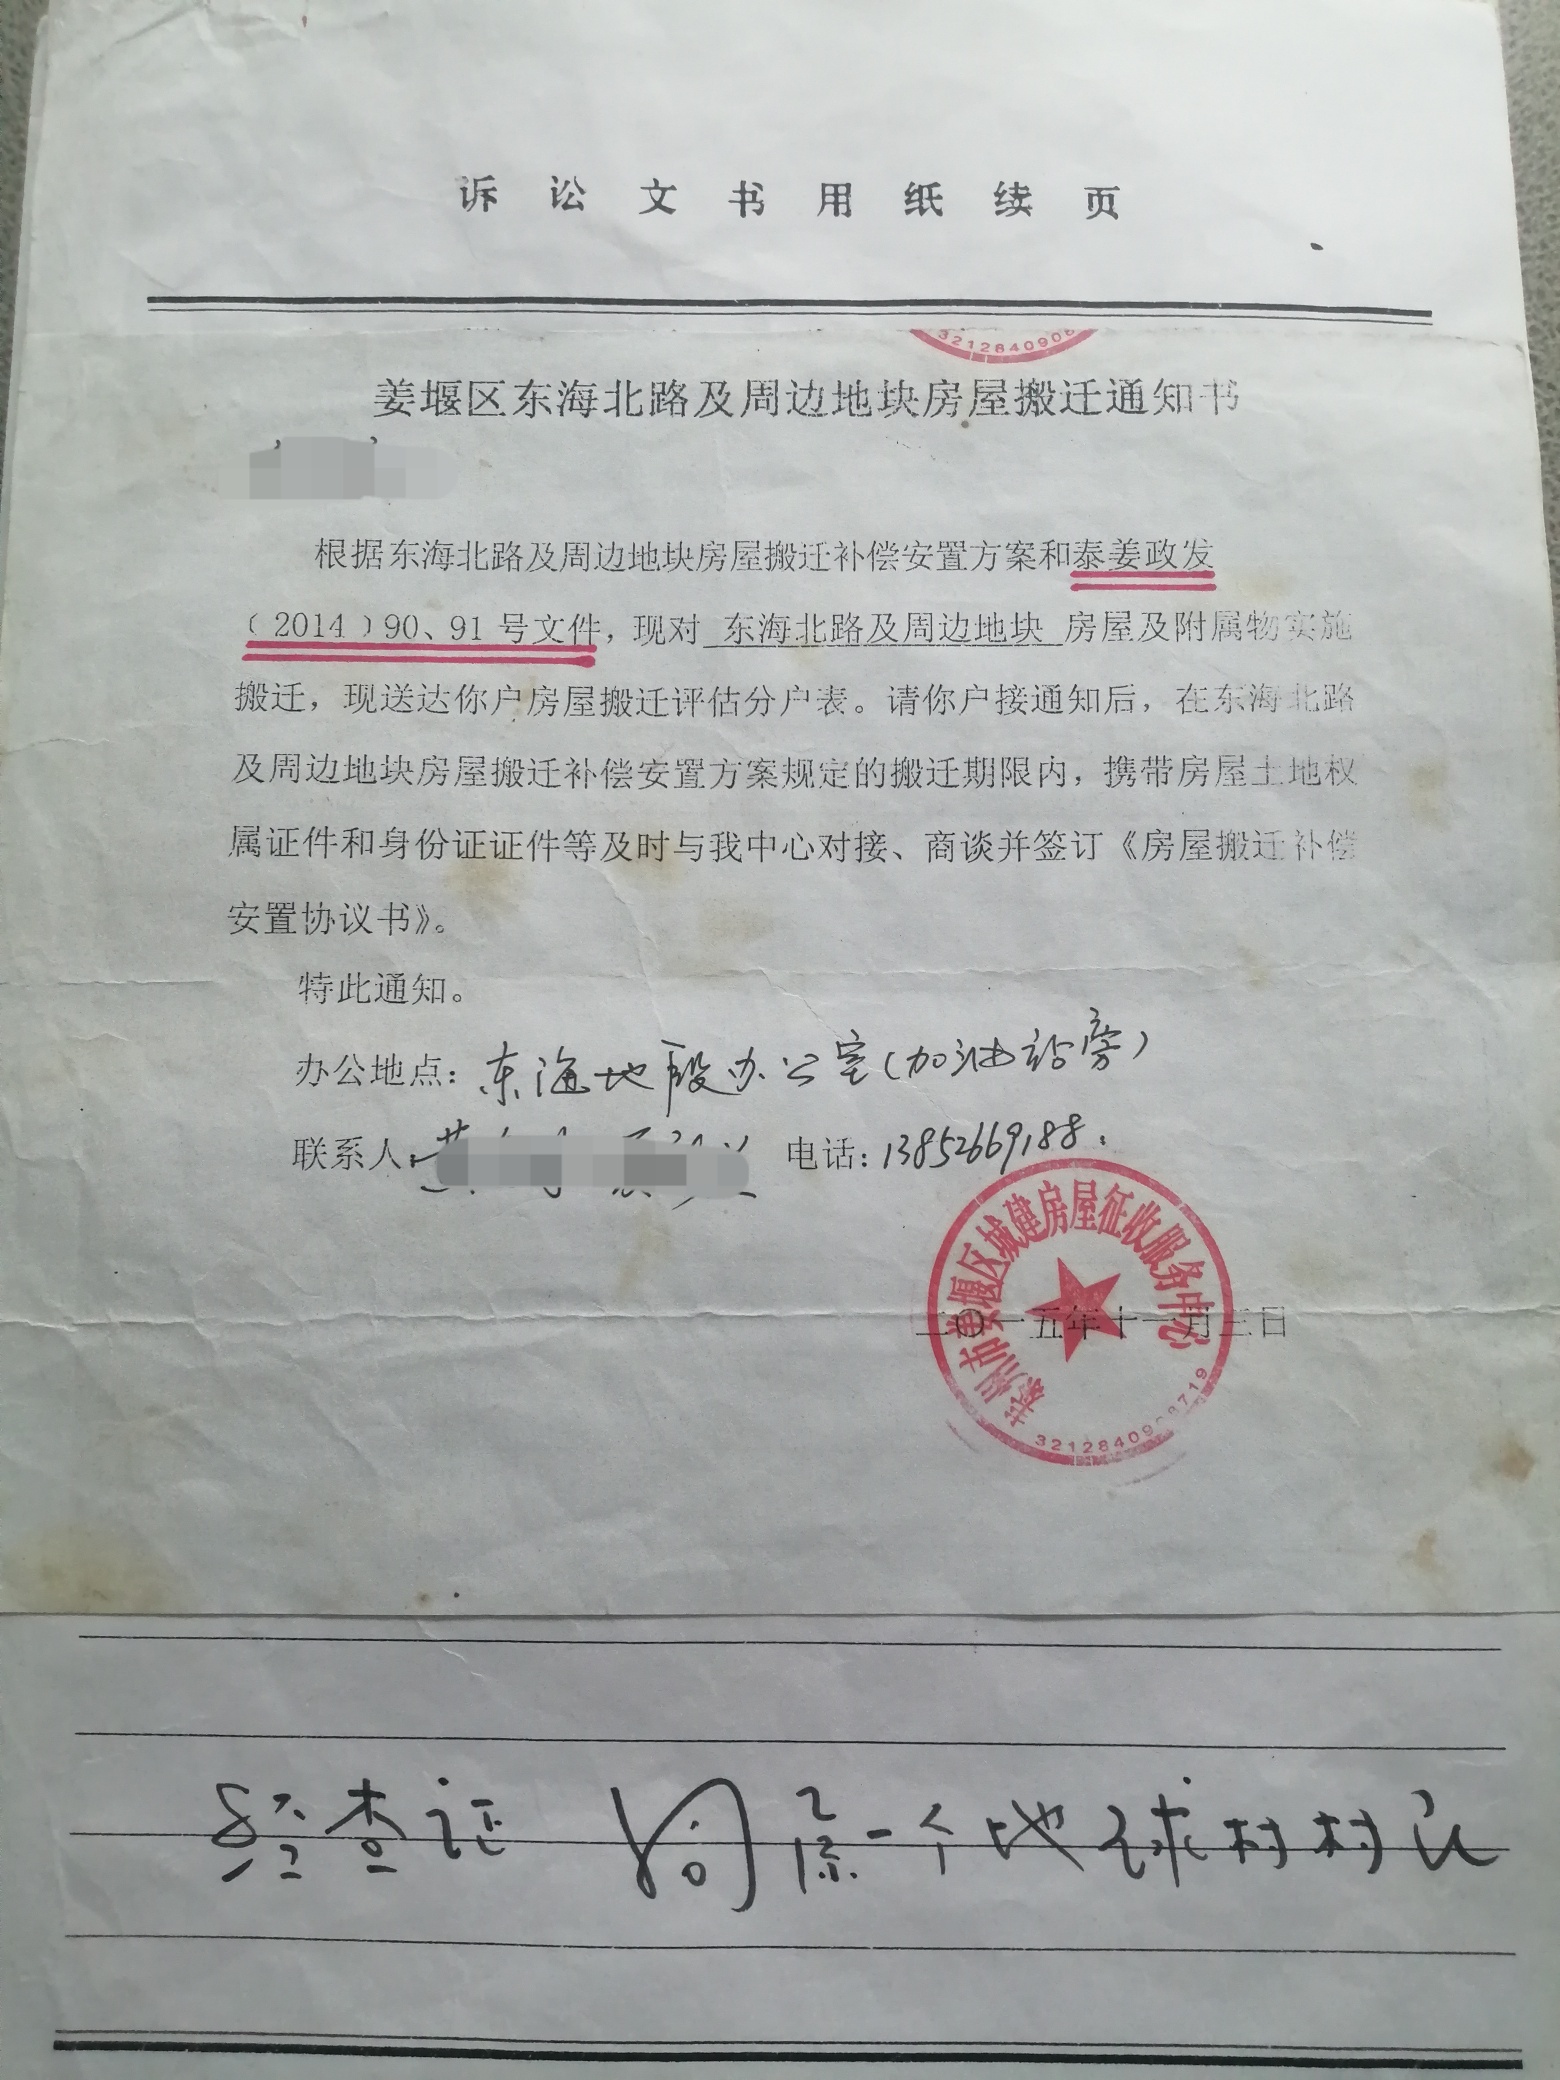 诉讼文书用纸续页
3212840908
姜堰区东海北路及周边地块房屋搬迁通知书
根据东海北路及周边地块房屋搬迁补偿安置方案和泰姜政发
(2014)90、91号文件，现对 东海北路及周边地块 房屋及附属物实施
搬迁，现送达你户房屋搬迁评估分户表。请你户接通知后，在东海北路
及周边地块房屋搬迁补偿安置方案规定的搬迁期限内，携带房屋土地权
属证件和身份证证件等及时与我中心对接、商谈并签订《房屋搬迁补偿
安置协议书》。
特此通知。
办公地点：东海地段办公室(加油站旁)
联系人： 电话：13852669188.
泰州市姜堰区城建房屋征收服务中心
二〇一五年十一月三日
3212840908719
经查证 同属一个地球村村民